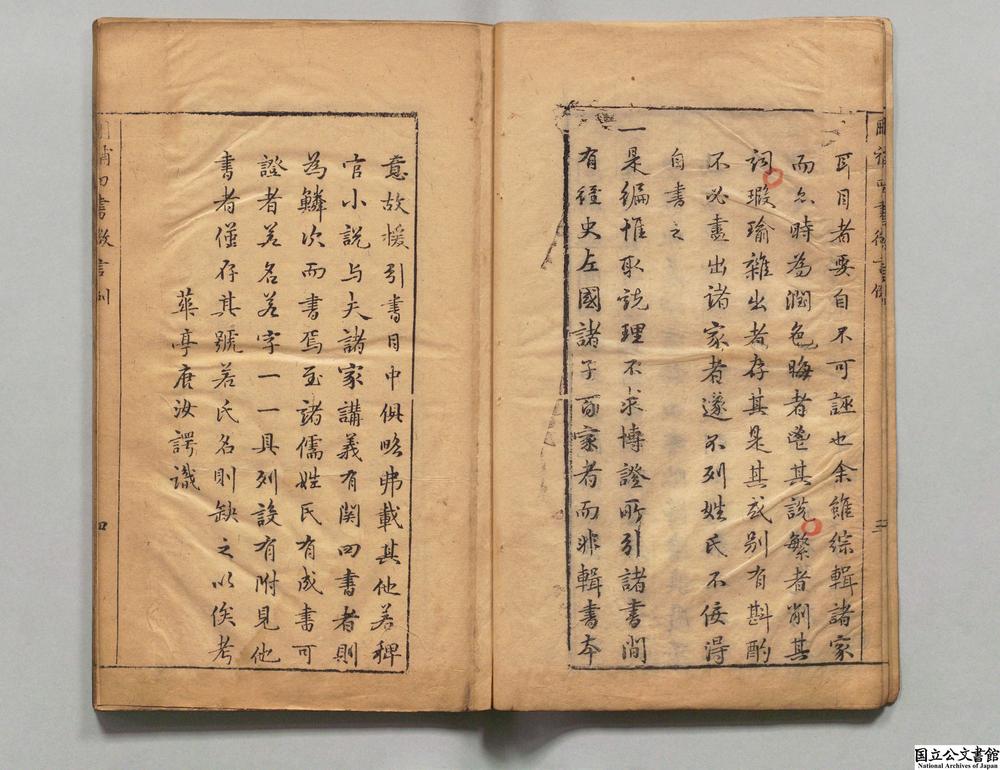 耳目者要自不可誣也余雖綜輯諸家
而亦時為潤色晦者鬯其説繁者削其
詞瑕瑜雜出者存其是其或别有斟酌
不必盡出諸家者遂不列姓氏不佞得
自書之
一是編惟取説理不求博證所引諸書間
有經史左國諸子百家者而非輯書本
意故援引書目中俱略弗載其他若稗
官小説与夫諸家講義有関四書者則
為鱗次而書焉至諸儒姓氏有成書可
證者若名若字一一具列設有附見他
書者僅存其號若氏名則缺之以俟考
華亭唐汝諤識
四書微言例
三
四
国立公文書館
National Archives of Japan